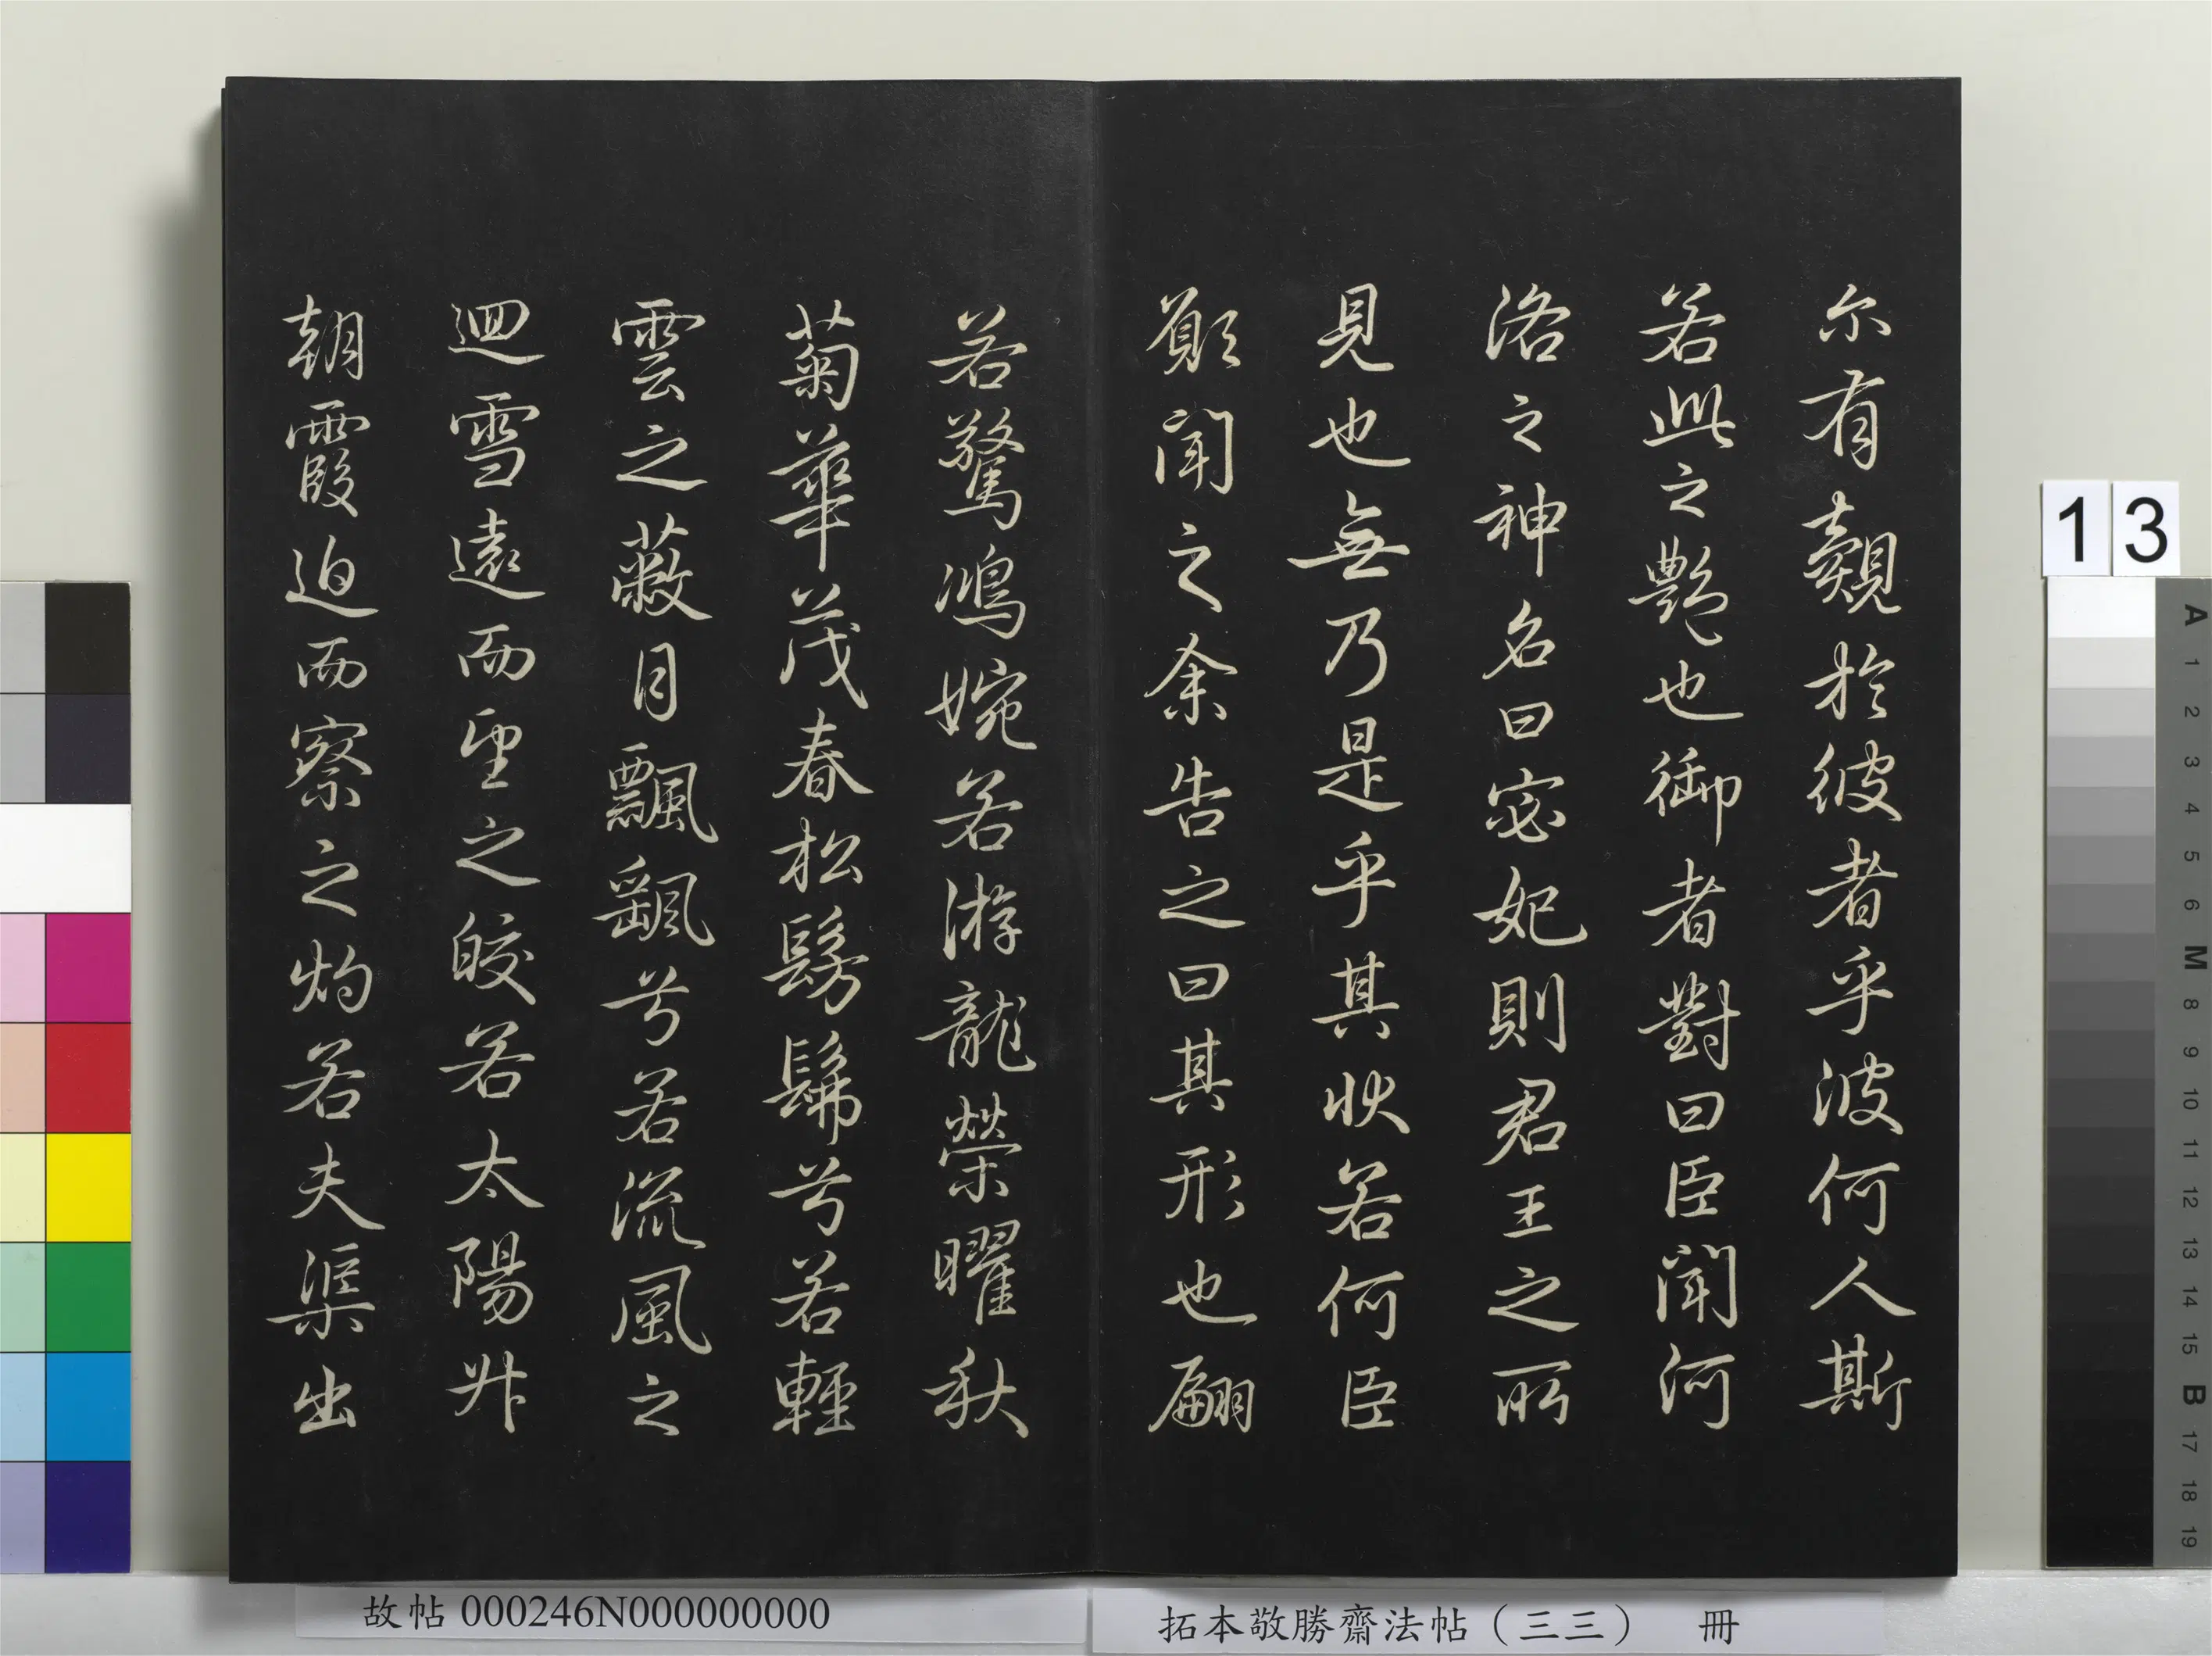 尔有覿於彼者乎波何人斯
若此之艷也御者對曰臣聞河
洛之神名曰宓妃則君王之所
見也無乃是乎其狀若何臣
願聞之余告之曰其形也翩
若驚鴻婉若游龍榮曜秋
菊華茂春松髣髴兮若輕
雲之蔽月飄颻兮若流風之
迴雪遠而望之皎若太陽升
朝霞迫而察之灼若夫渠出
故帖 000246N000000000
拓本敬勝齋法帖（三三） 冊
13
A 1 2 3 4 5 6 M 8 9 10 11 12 13 14 15 B 17 18 19